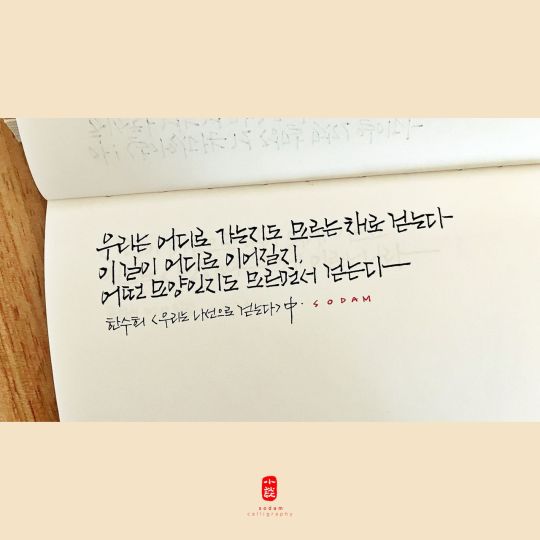 우리는 어디로 가는지도 모르는 채로 걷는다
이 길이 어디로 이어질지,
어떤 모양인지도 모르면서 걷는다
한수희 <우리는 나선으로 걷는다> 中. SODAM
小談
sodam
calligraphy